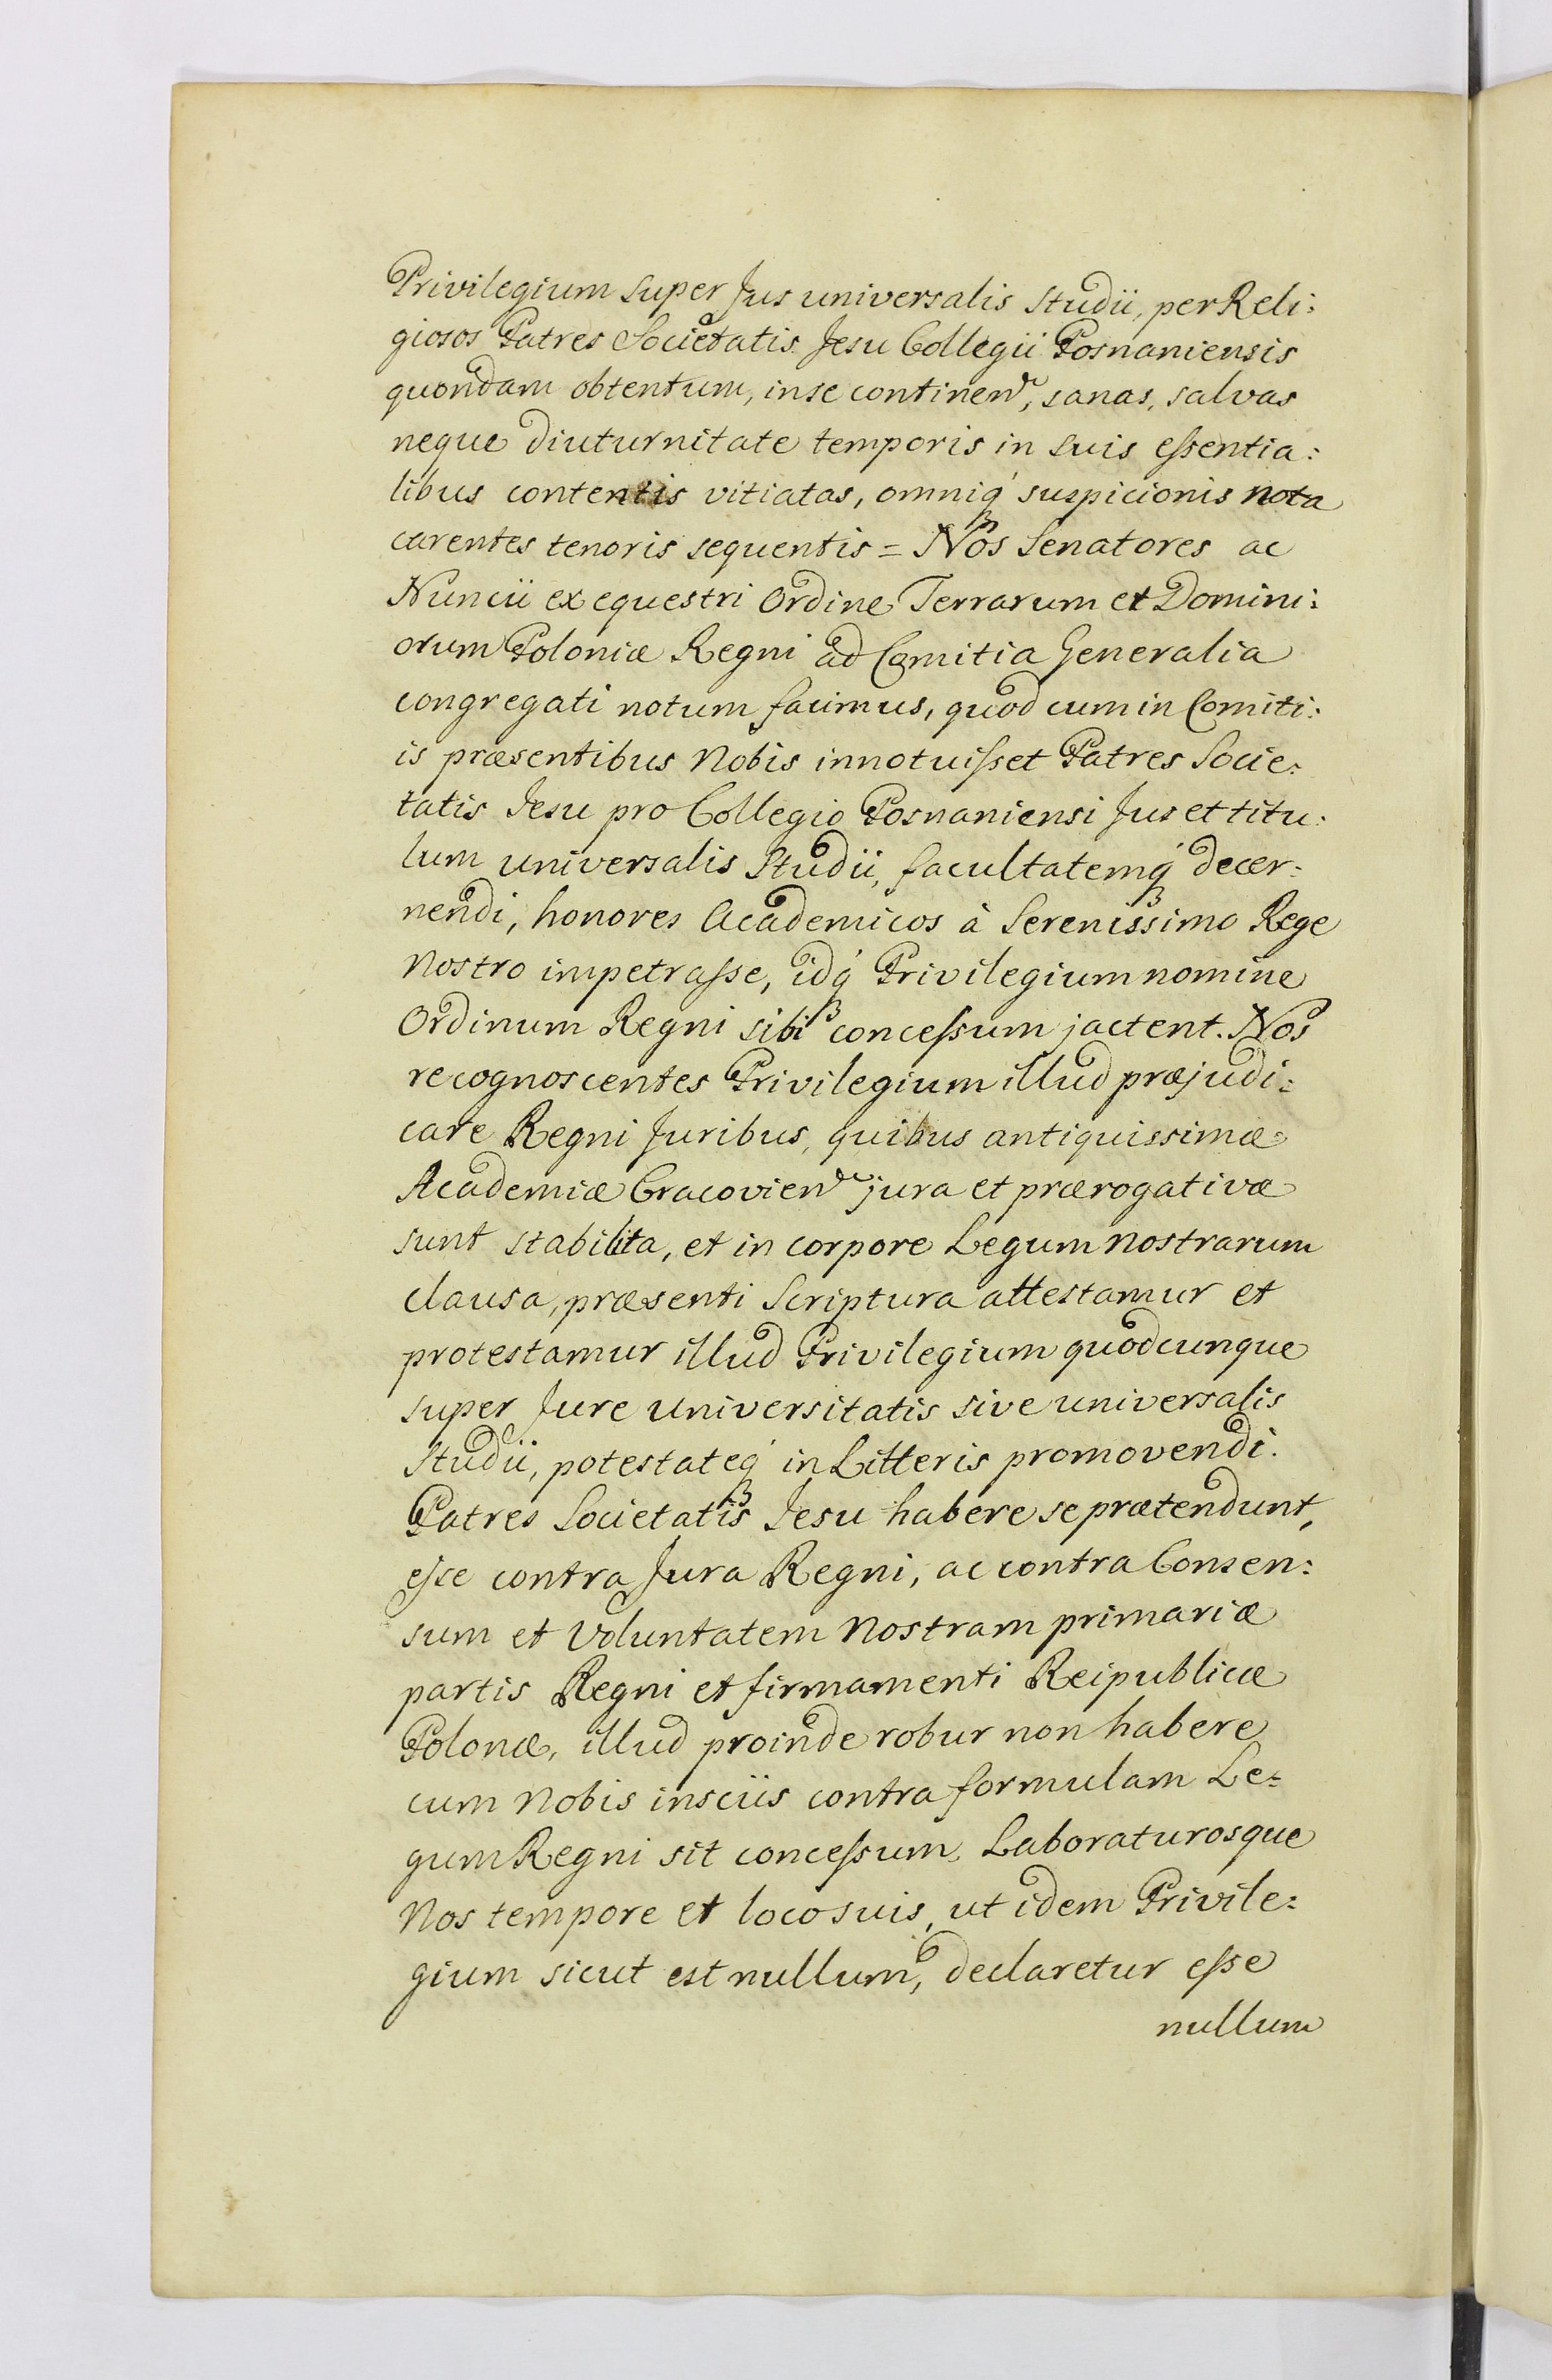 Privilegium super Jus universalis Studii, per Reli:
giosos Patres Societatis Jesu Collegii Posnaniensis
quondam obtentum, in se continen, sanas, salvas
neque diuturnitate temporis in suis eſsentia:
libus contentis vitiatas, omniq́ suspicionis nota
carentes tenoris sequentis = Nos Senatores ac
Nuncii ex equestri Ordine Terrarum et Domini:
orum Poloniæ Regni ad Comitia Generalia
congregati notum facimus, quod cum in Comiti:
is præsentibus Nobis innotuiſset Patres Socie:
tatis Jesu pro Collegio Posnaniensi Jus et titu:
lum universalis Studii, facultatemq́ decer:
nendi, honores Academicos à Serenissimo Rege
Nostro impetraſse, idq́ Privilegium nomine
Ordinum Regni sibi conceſsum jactent. Nos
recognoscentes Privilegium illud præjudi:
care Regni Juribus, quibus antiquissimæ
Academiæ Cracovien jura et prærogativæ
sunt stabilita, et in corpore Legum nostrarum
clausa, præsenti Scriptura attestamur et
protestamur illud Privilegium quodcunque
super Jure Universitatis sive universalis
Studii, potestateq́ in Litteris promovendi.
Patres Societatis Jesu habere se prætendunt,
eſse contra Jura Regni, ac contra Consen:
sum et Voluntatem Nostram primariæ
partis Regni et firmamenti Reipublicæ
Polonæ, illud proinde robur non habere
cum Nobis insciis contra formulam Le:
gum Regni sit conceſsum, Laboraturosque
Nos tempore et loco suis, ut idem Privile:
gium sicut est nullum, declaretur eſse
nullum